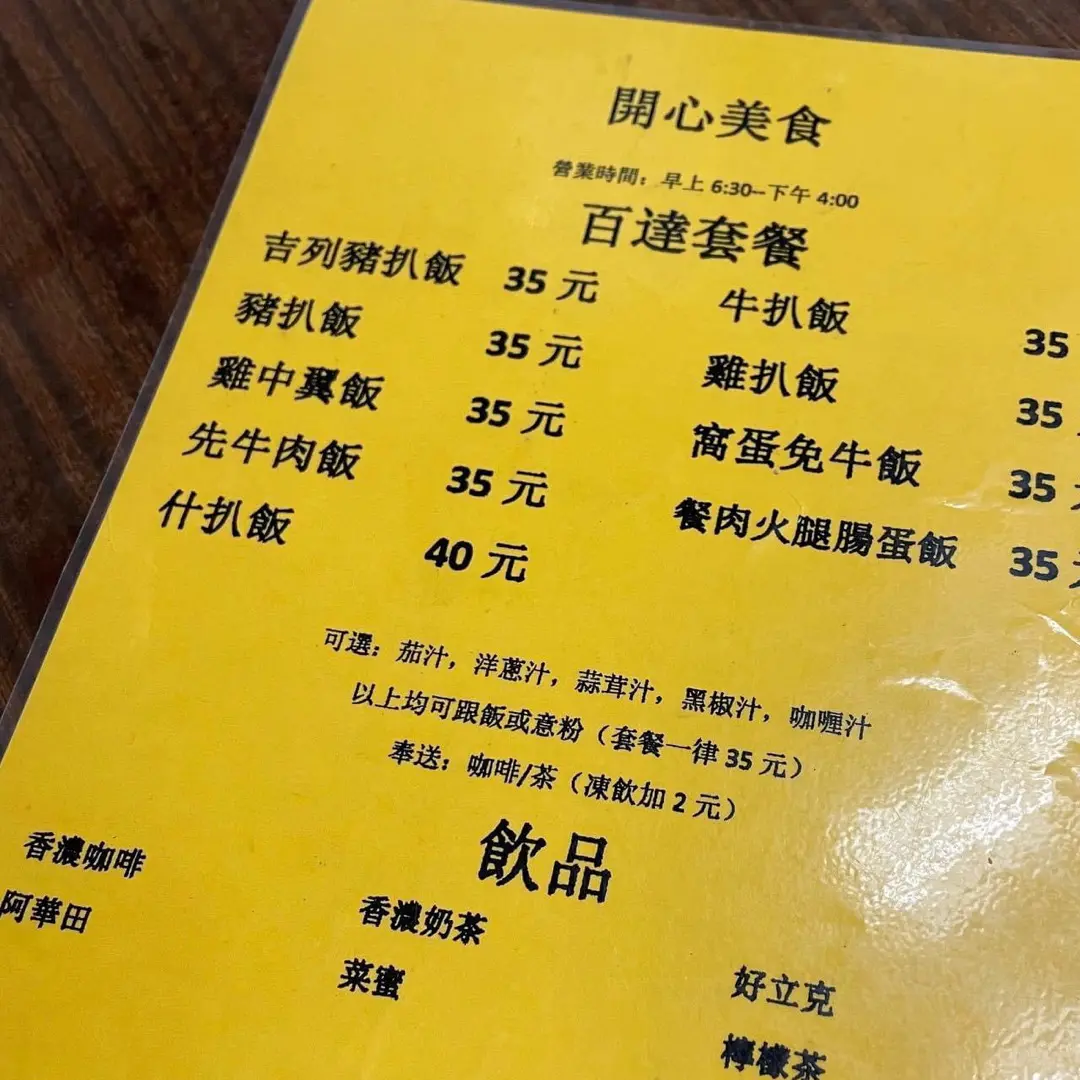 開心美食
營業時間：早上 6:30--下午 4:00
百達套餐
吉列豬扒飯 35 元 牛扒飯 35
豬扒飯 35 元 雞扒飯 35
雞中翼飯 35 元 窩蛋免牛飯 35
先牛肉飯 35 元 餐肉火腿腸蛋飯 35 元
什扒飯 40 元
可選：茄汁，洋蔥汁，蒜茸汁，黑椒汁，咖喱汁
以上均可跟飯或意粉（套餐一律 35 元）
奉送：咖啡/茶（凍飲加 2 元）
飲品
香濃咖啡 香濃奶茶 好立克
阿華田 菜蜜 檸檬茶